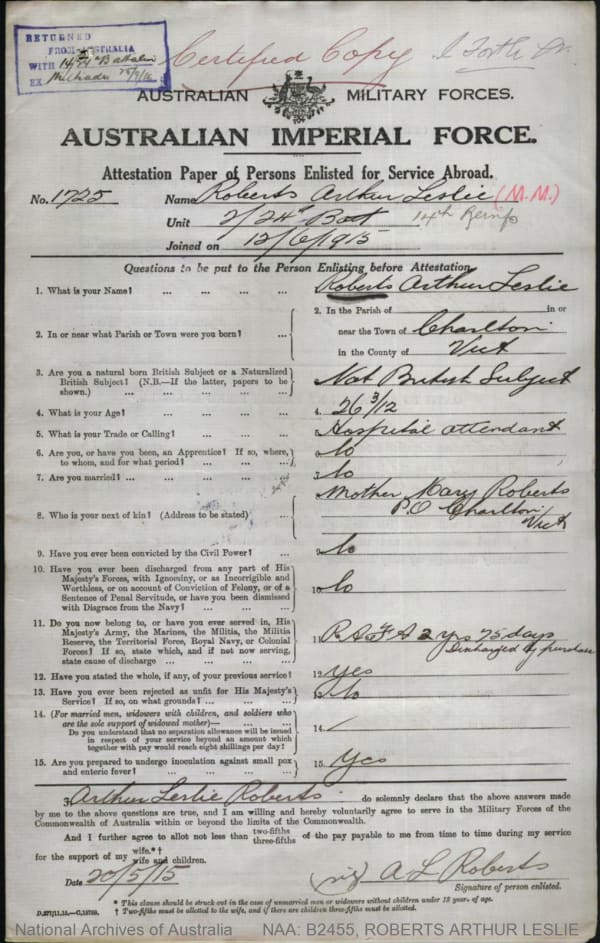 RETURNED
FROM AUSTRALIA
WITH 14/24 Battalion
EX Miltiades
Certified Copy
AUSTRALIAN MILITARY FORCES.
AUSTRALIAN IMPERIAL FORCE.
Attestation Paper of Persons Enlisted for Service Abroad.
No. 1725 Name Roberts Arthur Leslie (M.M.)
Unit 2/24th Batt 14th Reinfs
Joined on 12/6/1915
Questions to be put to the Person Enlisting before Attestation
1. What is your Name? ... ... ... ... Roberts Arthur Leslie
2. In or near what Parish or Town were you born? ... 2. In the Parish of in or
near the Town of Charlton
in the County of Vict
3. Are you a natural born British Subject or a Naturalized
British Subject? (N.B.—If the latter, papers to be
shown.) ... ... ... ... ... Nat British Subject
4. What is your Age? ... ... ... ... 4. 26 3/12
5. What is your Trade or Calling? ... ... ... 5 Hospital attendant
6. Are you, or have you been, an Apprentice? If so, where,
to whom, and for what period? ... ... ... 6 No
7. Are you married? ... ... ... ... 7 No
8. Who is your next of kin? (Address to be stated) ... Mother Mary Roberts
P.O Charlton
Vict
9. Have you ever been convicted by the Civil Power? ... 9. No
10. Have you ever been discharged from any part of His
Majesty's Forces, with Ignominy, or as Incorrigible and
Worthless, or on account of Conviction of Felony, or of a
Sentence of Penal Servitude, or have you been dismissed
with Disgrace from the Navy? ... ... ... 10. No
11. Do you now belong to, or have you ever served in, His
Majesty's Army, the Marines, the Militia, the Militia
Reserve, the Territorial Force, Royal Navy, or Colonial
Forces? If so, state which, and if not now serving,
state cause of discharge ... ... ... ... 11 R A F A 2 yrs 75 days
Discharged by purchase
12. Have you stated the whole, if any, of your previous service? 12. Yes
13. Have you ever been rejected as unfit for His Majesty's
Service? If so, on what grounds? ... ... ... 13. No
14. (For married men, widowers with children, and soldiers who
are the sole support of widowed mother)—
Do you understand that no separation allowance will be issued
in respect of your service beyond an amount which
together with pay would reach eight shillings per day? 14. /
15. Are you prepared to undergo inoculation against small pox
and enteric fever? ... ... ... ... 15. Yes
I, Arthur Leslie Roberts do solemnly declare that the above answers made
by me to the above questions are true, and I am willing and hereby voluntarily agree to serve in the Military Forces of the
Commonwealth of Australia within or beyond the limits of the Commonwealth.
And I further agree to allot not less than two-fifths three-fifths of the pay payable to me from time to time during my service
for the support of my wife.*† wife and children.
Date 20/5/15 A L Roberts
Signature of person enlisted.
* This clause should be struck out in the case of unmarried men or widowers without children under 18 years of age.
† Two-fifths must be allotted to the wife, and if there are children three-fifths must be allotted.
D.277/11.15.—C.15798.
National Archives of Australia NAA: B2455, ROBERTS ARTHUR LESLIE